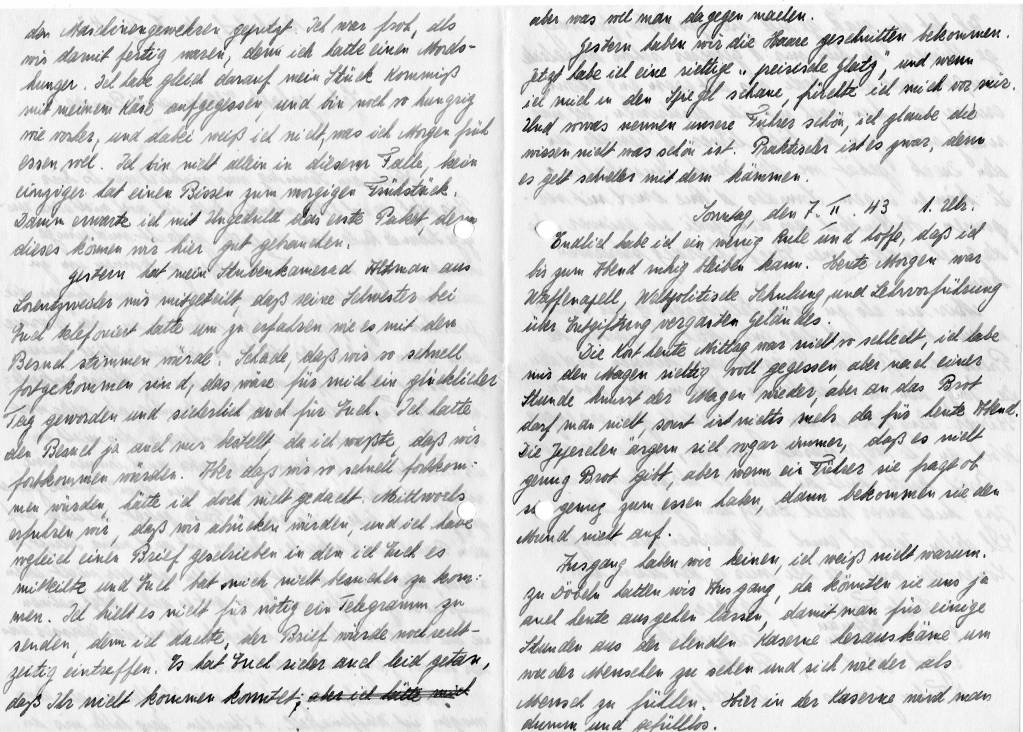 den Maschinengewehren geputzt. Ich war froh, als
wir damit fertig waren, denn ich hatte einen Mords-
hunger. Ich habe gleich darauf mein Stück Kommiß
mit meinem Käse aufgegessen, und bin noch so hungrig
wie vorher, und dabei weiß ich nicht, was ich Morgen früh
essen soll. Ich bin nicht allein in diesem Falle, kein
einziger hat einen Bissen zum morgigen Frühstück.
Darum erwarte ich mit Ungeduld das erste Paket, denn
dieses können wir hier gut gebrauchen.
gestern hat mein Stubenkamerad Altman aus
Lorenzweiler mir mitgeteilt, daß seine Schwester bei
Euch telefoniert hätte um zu erfahren wie es mit dem
Besuch stimmen würde. Schade, daß wir so schnell
fortgekommen sind, das wäre für mich ein glücklicher
Tag geworden und sicherlich auch für Euch. Ich hatte
den Besuch ja auch nur bestellt, da ich wußte, daß wir
fortkommen würden. Aber daß wir so schnell fortkom:
men würden, hätte ich doch nicht gedacht. Mittwochs
erfuhren wir, daß wir abrücken würden, und ich habe
sogleich einen Brief geschrieben in dem ich Euch es
mitteilte und Euch bat mich nicht besuchen zu kom:
men. Ich hielt es nicht für nötig ein Telegramm zu
senden, denn ich dachte, der Brief würde noch recht-
zeitig eintreffen. Es hat Euch sicher auch leid getan,
daß Ihr nicht kommen konntet, aber ich hätte mich
aber was soll man dagegen machen.
Gestern haben wir die Haare geschnitten bekommen.
Jetzt habe ich eine richtige „preisische Glatz", und wenn
ich mich in dem Spiegel schaue, fürchte ich mich vor mir.
Und sowas nennen unsere Führer schön, ich glaube die
wissen nicht was schön ist. Praktischer ist es zwar, denn
es geht schneller mit dem kämmen.
Sonntag, den 7. II. 43 1. Uhr.
Endlich habe ich ein wenig Ruhe und hoffe, daß ich
bis zum Abend ruhig bleiben kann. Heute Morgen war
Waffenapell, Weltpolitische Schulung und Lehrvorführung
über Entgiftung vergasten Geländes.
Die Kost heute Mittag war nicht so schlecht, ich habe
mir den Magen richtig voll gegessen aber nach einer
Stunde knurrt der Magen wieder, aber an das Brot
darf man nicht, sonst ist nichts mehr da für heute Abend.
Die ärgern sich sogar immer, daß es nicht
genug Brot gibt, aber wenn ein Führer sie frage ob
sie genug zum essen haben, dann bekommen sie den
Mund nicht auf.
Ausgang haben wir keinen, ich weiß nicht warum.
zu Döbeln hatten wir Ausgang, da könnten sie uns ja
auch heute ausgehen lassen, damit man für einige
Stunden aus der elenden Kaserne herauskäme um
wieder Menschen zu sehen und sich wieder als
Mensch zu fühlen. Hier in der Kaserne wird man
dumm und gefühllos.